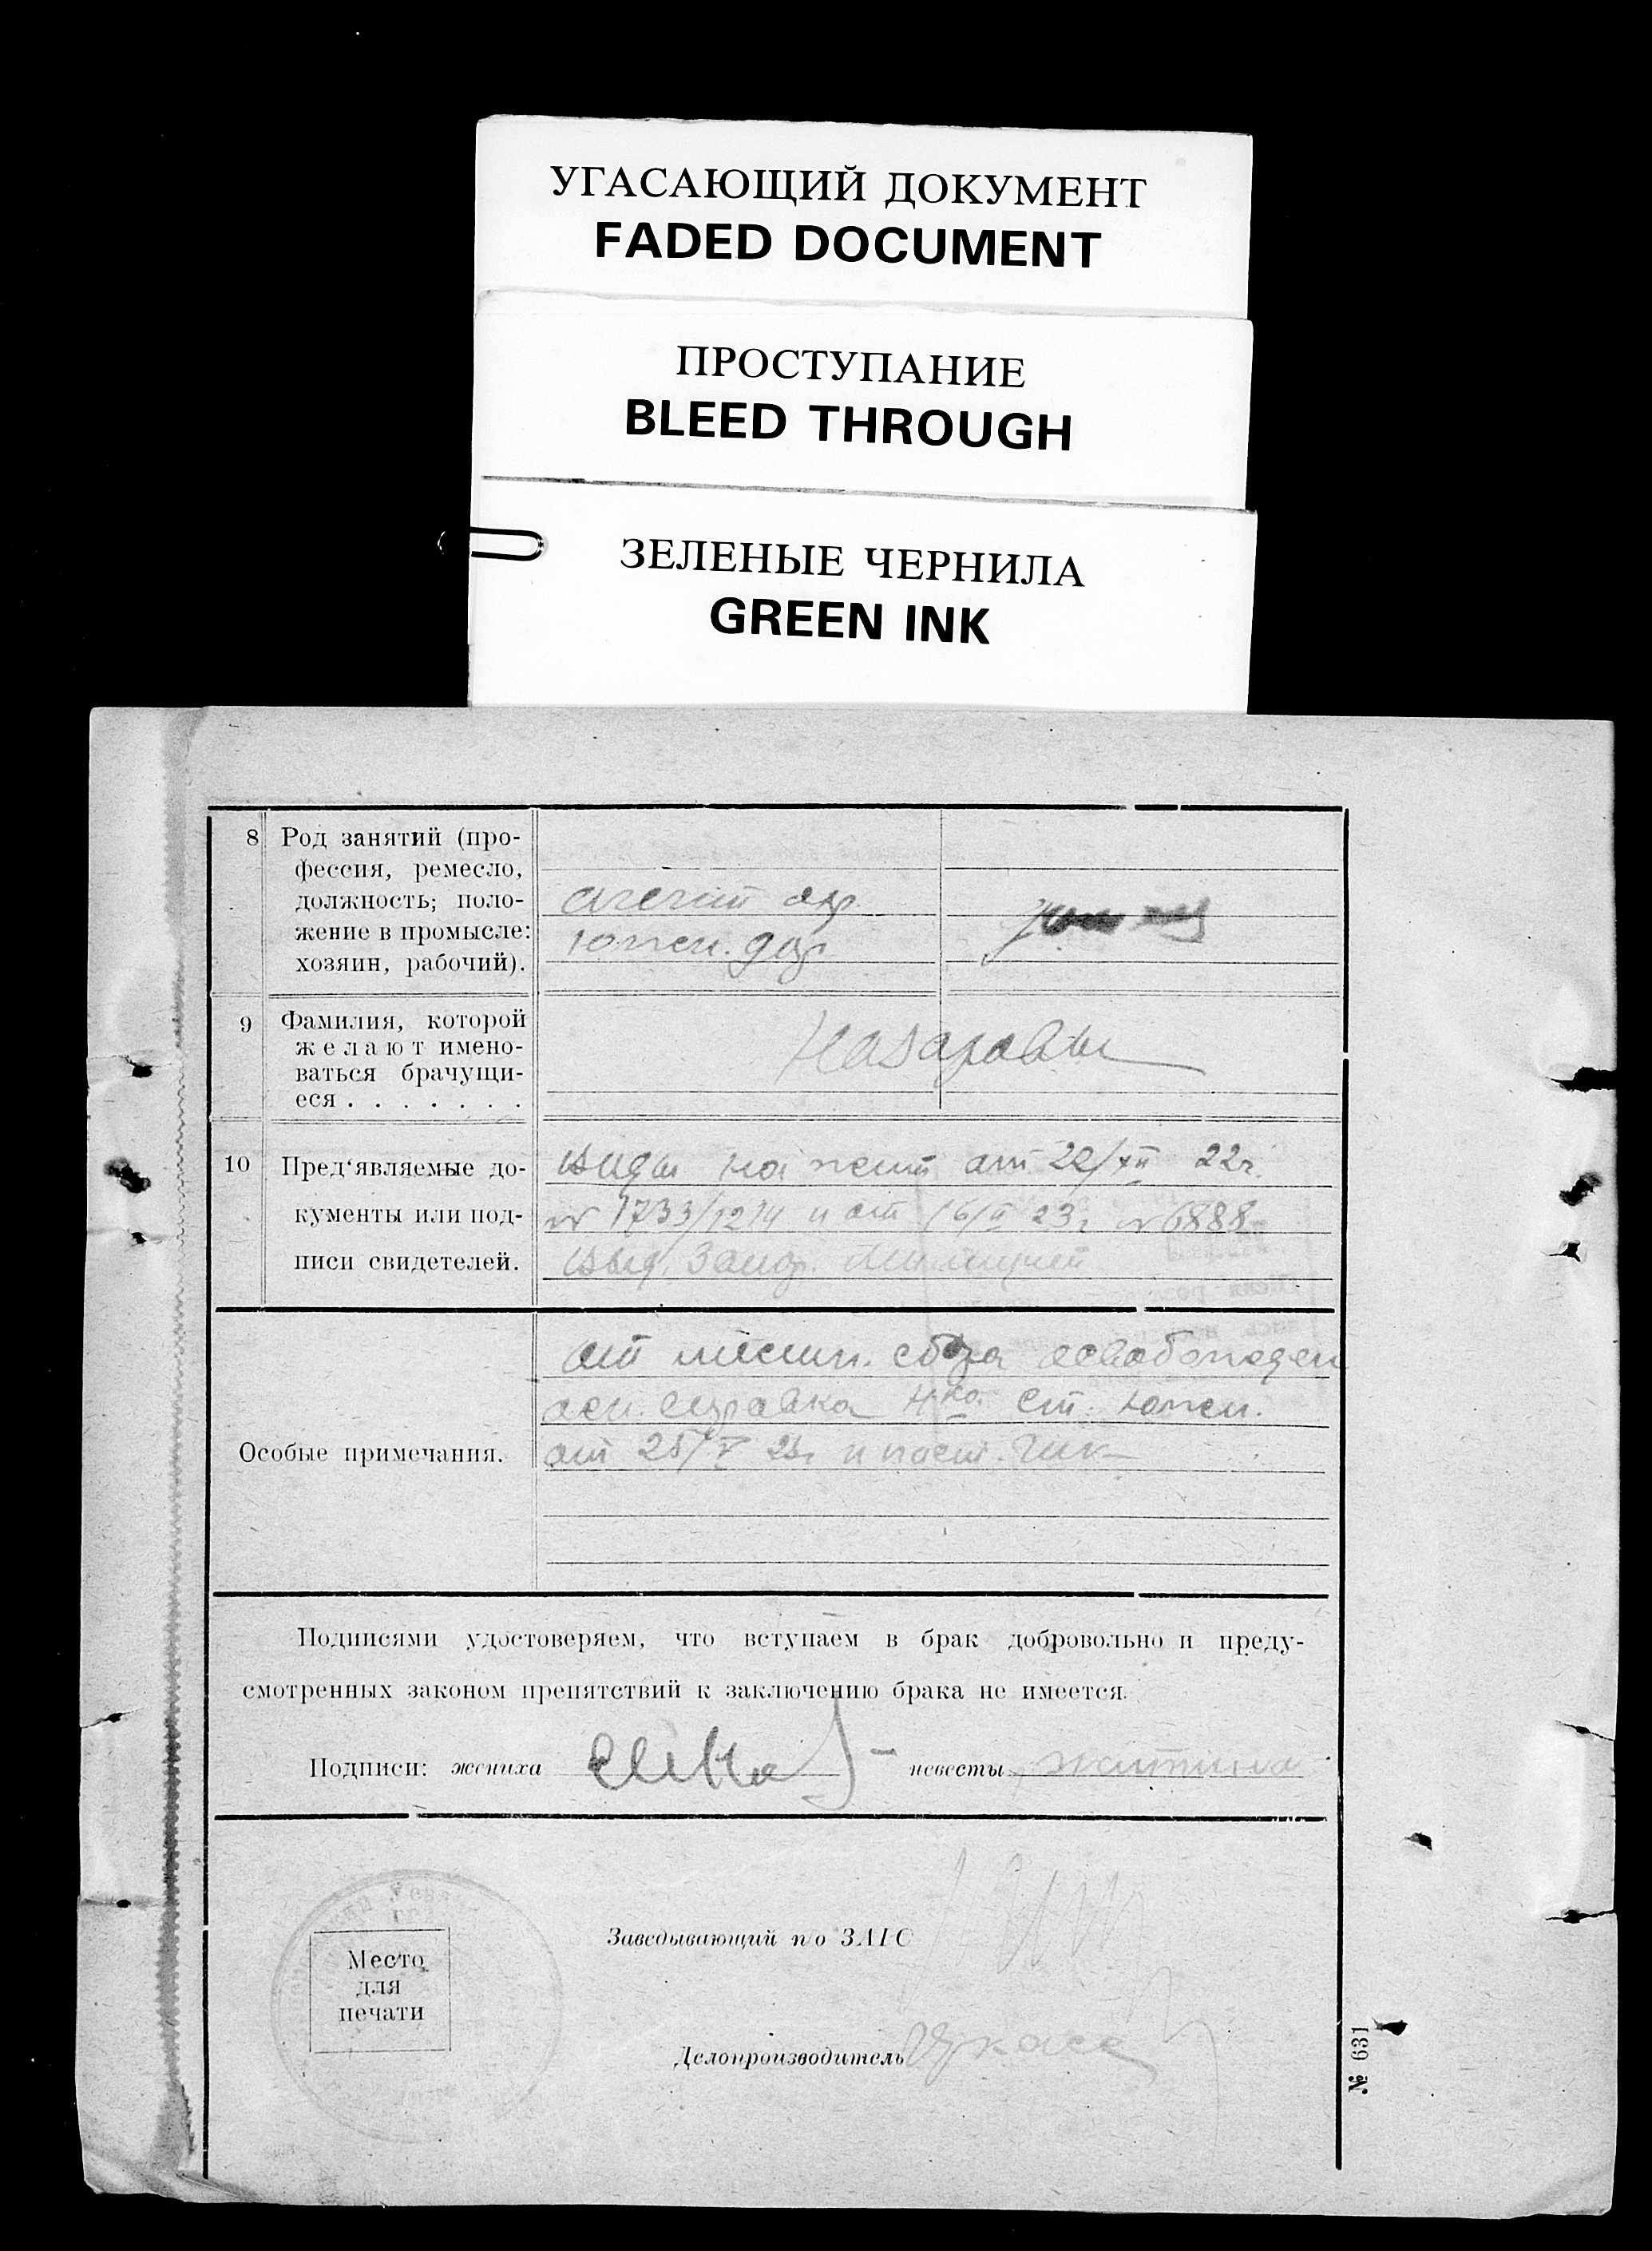 УГАСАЮЩИЙ ДОКУМЕНТ
FADED DOCUMENT
ПРОСТУПАНИЕ
BLEED THROUGH
ЗЕЛЕНЫЕ ЧЕРНИЛА
GREEN INK
8 Род занятий (про-
фессия, ремесло,
должность; поло-
жение в промысле:
хозяин, рабочий).
агент
южн. дор.
9 Фамилия, которой
желают имено-
ваться брачущи-
еся . . . . . . .
Назаровы
10 Пред‘являемые до-
кументы или под-
писи свидетелей.
виды на жит от 22/XII 22г.
№ 1733/1214 и от 16/II 23г № 6888
выд. милицией
Особые примечания.
от местн. сбора освобожден
осн. справка Н-ка ст. южн.
от 25/V 23г и пост.
Подписями удостоверяем, что вступаем в брак добровольно и преду-
смотренных законом препятствий к заключению брака не имеется.
Подписи: жениха невесты
Заведывающий п/о ЗАГС
Место
для
печати
Делопроизводитель
№ 631